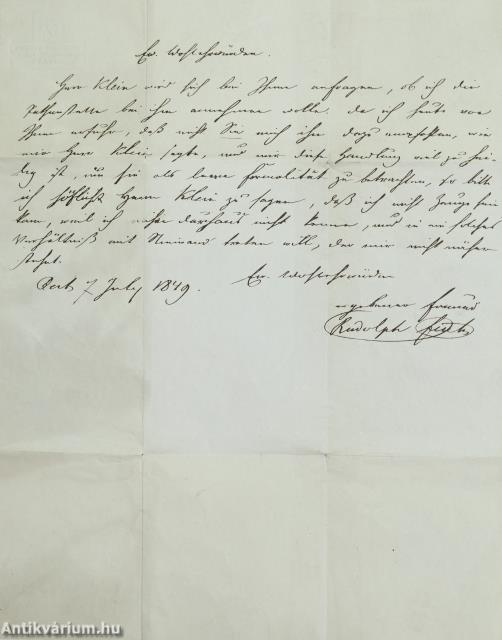 Ew. Wohlehrwürden.
Herr Klein wird sich bei Ihnen anfragen, ob ich die
bei ihm annehmen wolle. Da ich heute von
Ihnen erfuhr, daß nicht Sie mich ihm dazu empfohlen, wie
mir Herr Klein sagte, und mir diese Handlung viel zu hei-
lig ist, um sie als leere Formalität zu betrachten, so bitte
ich höflichst Herrn Klein zu sagen, daß ich nicht Zeuge sein
kann, weil ich durchaus nicht kenne, und in ein solches
Verhältniß mit Niemand treten will, der mir nicht näher
steht.
Ew. Wohlehrwürden
Pest 7 July 1849.
ergebener Freund
Rudolph
Antikvárium.hu